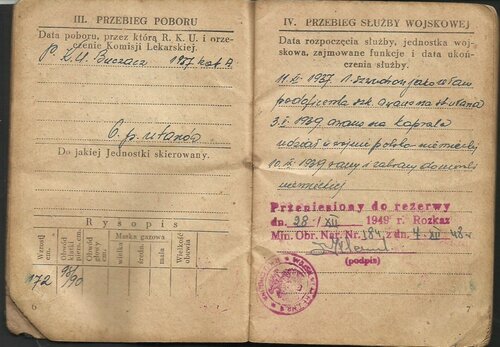 III. PRZEBIEG POBORU
Data poboru, przez którą R. K. U. i orze-
czenie Komisji Lekarskiej.
P. K.U. Buczacz 1937 kat A
6. p. ułanów
Do jakiej Jednostki skierowany.
Rysopis
Wzrost cm.
Obwód klatki piers. cm.
Obwód głowy cm.
Maska gazowa
wielka
średn.
mała
Wielkość obuwia
172
98/90
6
IV. PRZEBIEG SŁUŻBY WOJSKOWEJ
Data rozpoczęcia służby, jednostka woj-
skowa, zajmowane funkcje i data ukoń-
czenia służby.
1937 szwadron jako ułan
podoficerska szk. awans na st. ułana
1939 awans na kaprala
udział w wojnie polsko-niemieckiej
1939 ranny i zabrany do niewoli
niemieckiej
Przeniesiony do rezerwy
dn. 28/XII 1949 r. Rozkaz
Min. Obr. Nar. Nr. 184, z dn. 7 XII 48 r.
(podpis)
7